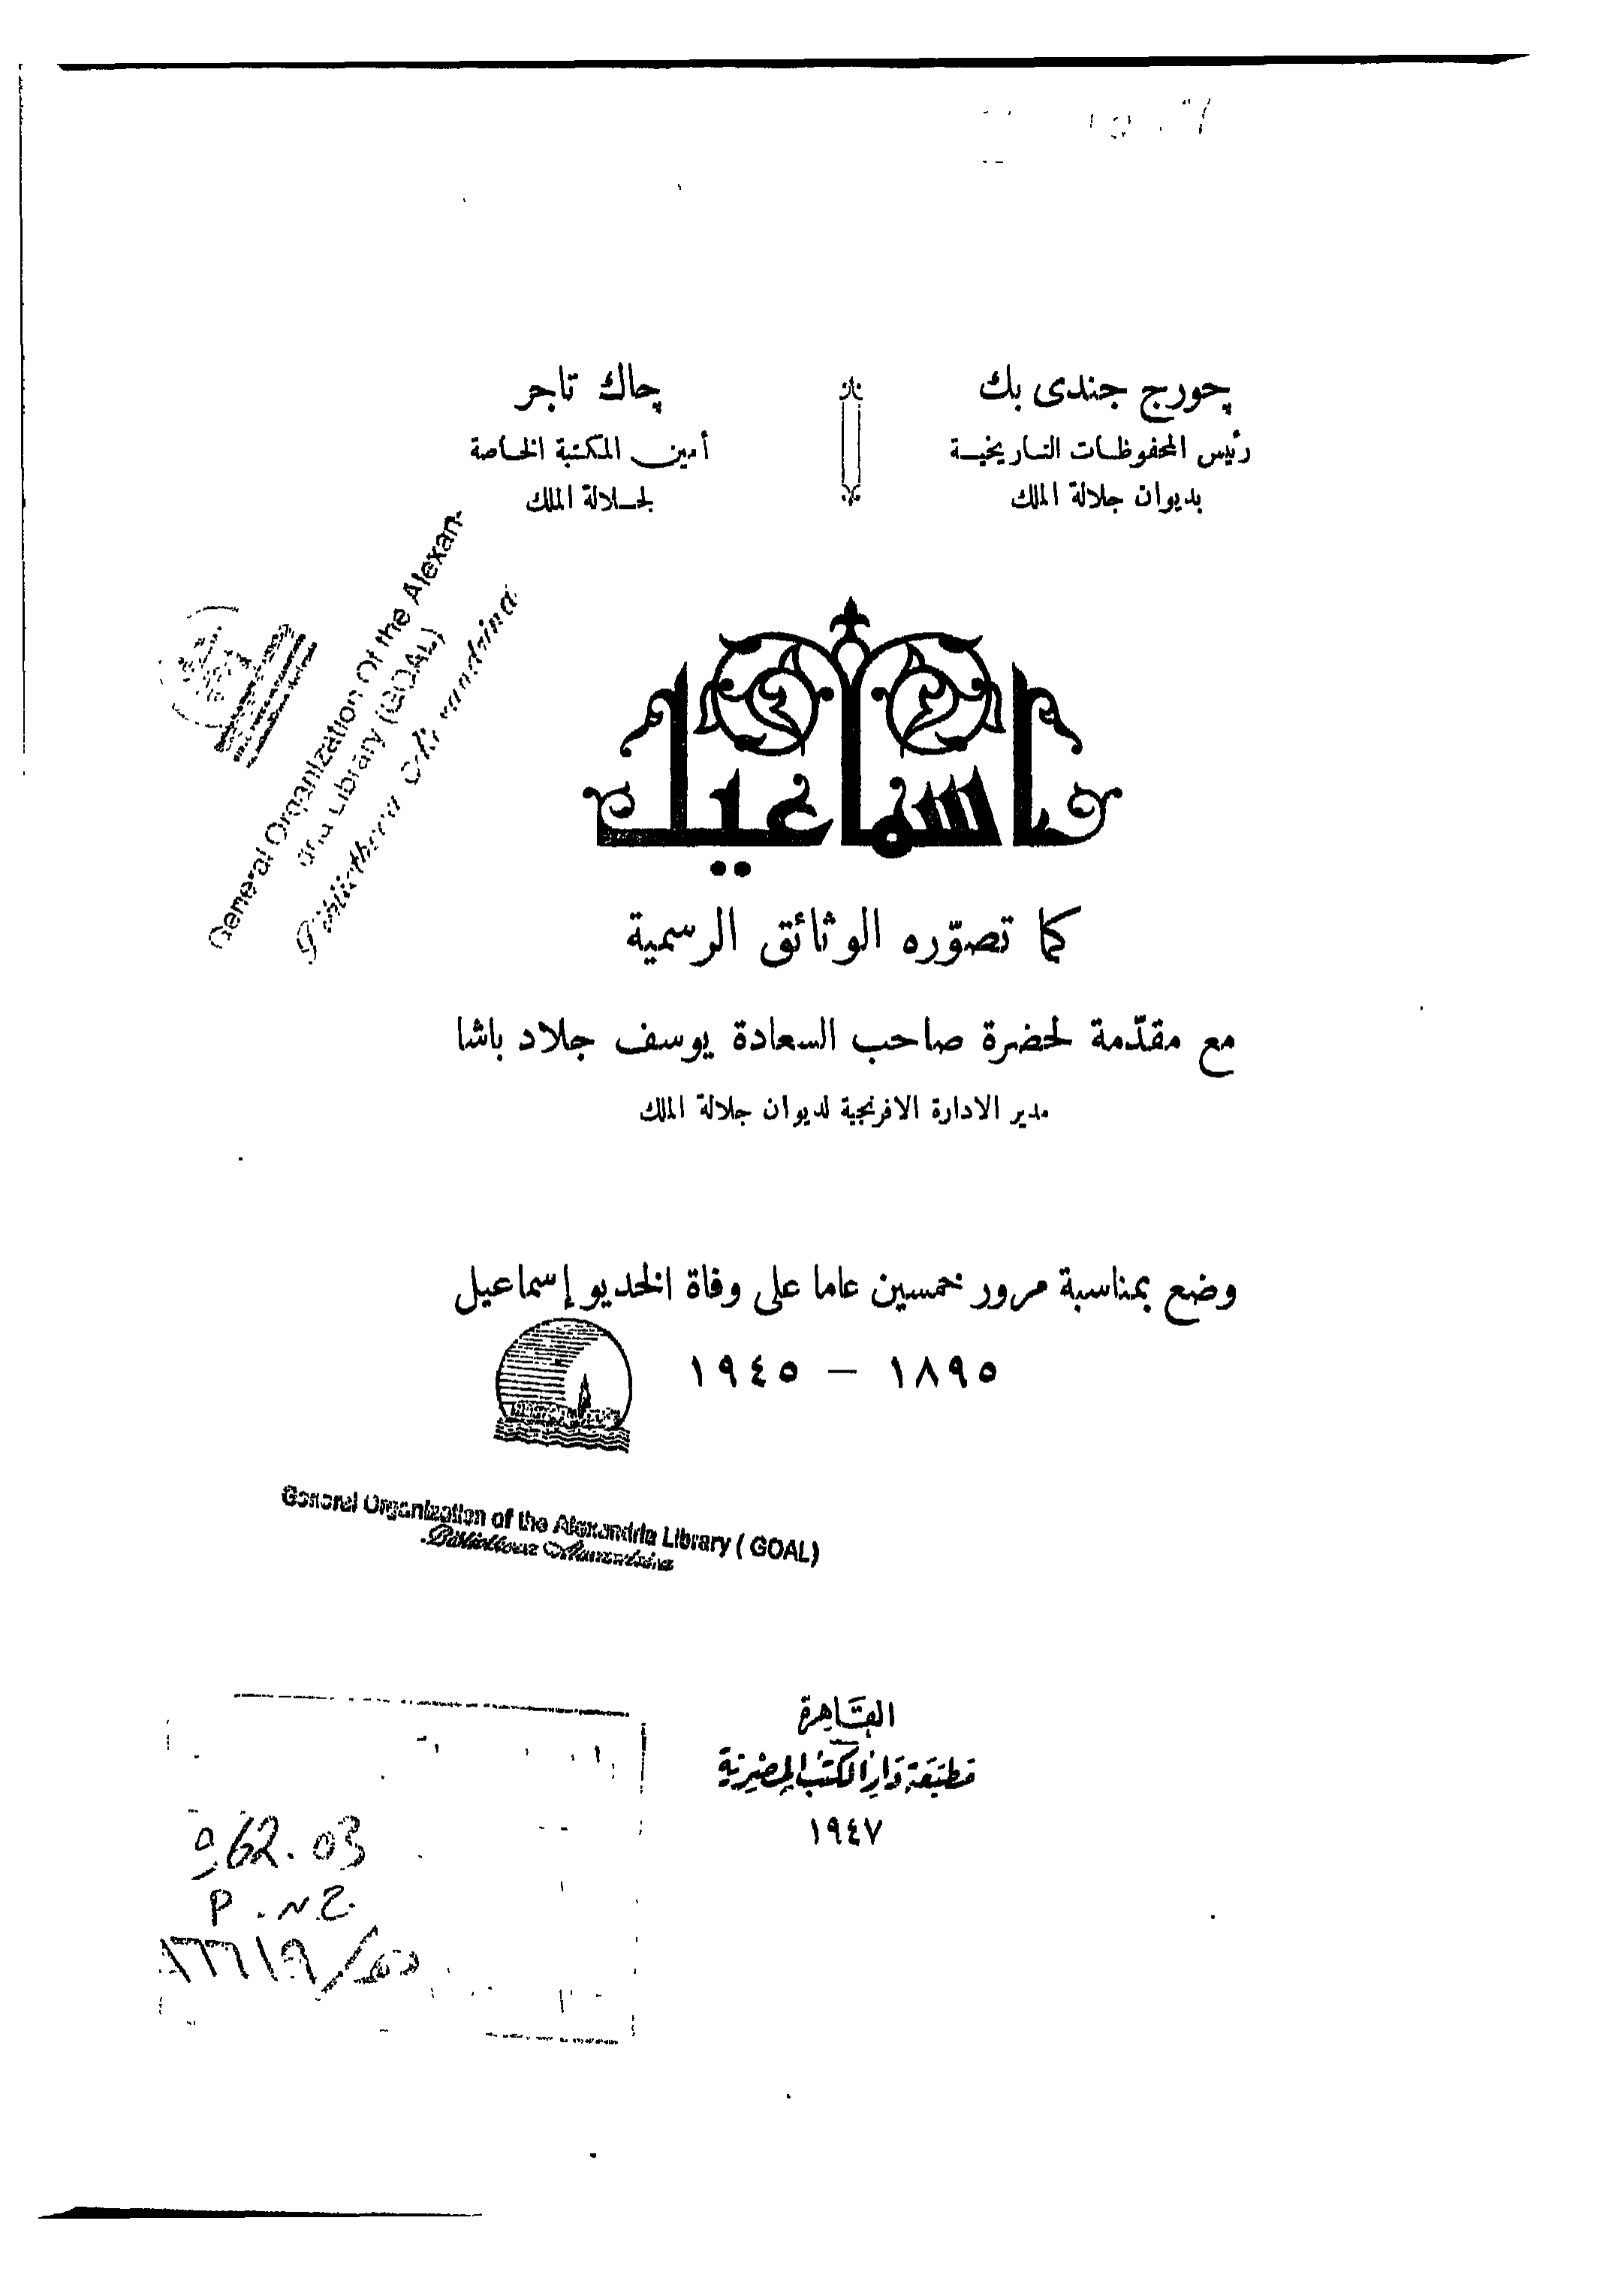 چورج جندى بك
رئيس المحفوظات التاريخية
بديوان جلالة الملك
چاك تاجر
أمين المكتبة الخاصة
لجلالة الملك
General Organization Of the Alexan-
dria Library (GOAL)
Bibliotheca Alexandrina
اسماعيل
كما تصوّره الوثائق الرسمية
مع مقدّمة لحضرة صاحب السعادة يوسف جلاد باشا
مدير الادارة الافرنجية لديوان جلالة الملك
وضع بمناسبة مرور خمسين عاما على وفاة الخديو إسماعيل
١٨٩٥ — ١٩٤٥
General Organization of the Alexandria Library ( GOAL)
Bibliotheca Alexandrina
القَاهِرة
مَطبَعَة دَار الكتب المِصْرِيَّة
١٩٤٧
962.03